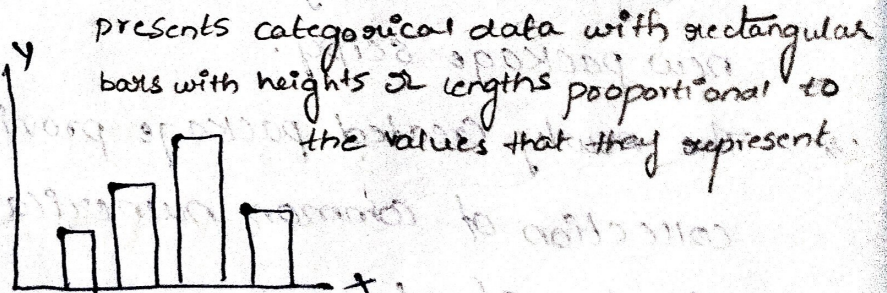 presents categorical data with rectangular
bars with heights or lengths proportional to
the values that they represent.
Y
X